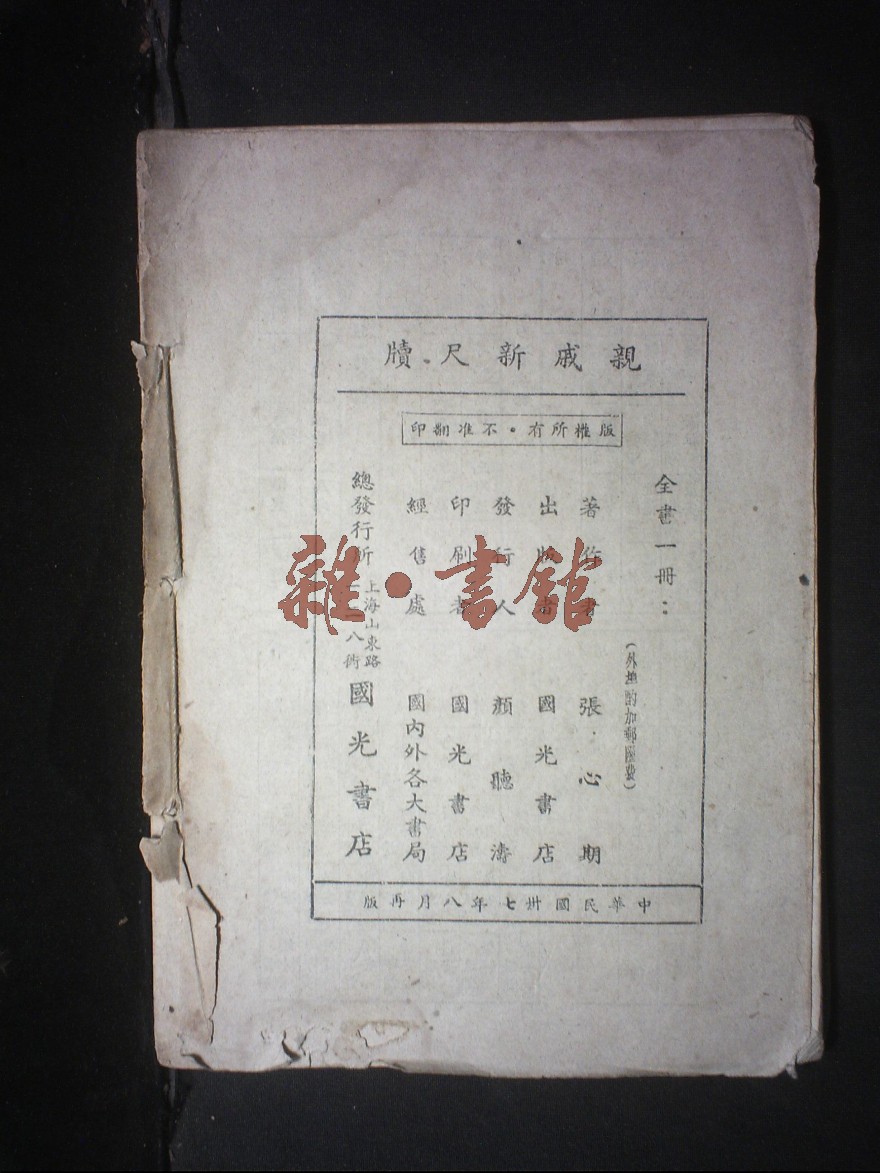 親戚新尺牘
版權所有・不准翻印
全書一冊：
（外埠酌加郵匯費）
著作者 張心期
出版者 國光書店
發行人 顏聽濤
印刷者 國光書店
經售處 國內外各大書局
總發行所 上海山東路 八衖 國光書店
中華民國卅七年八月再版
雜・書館